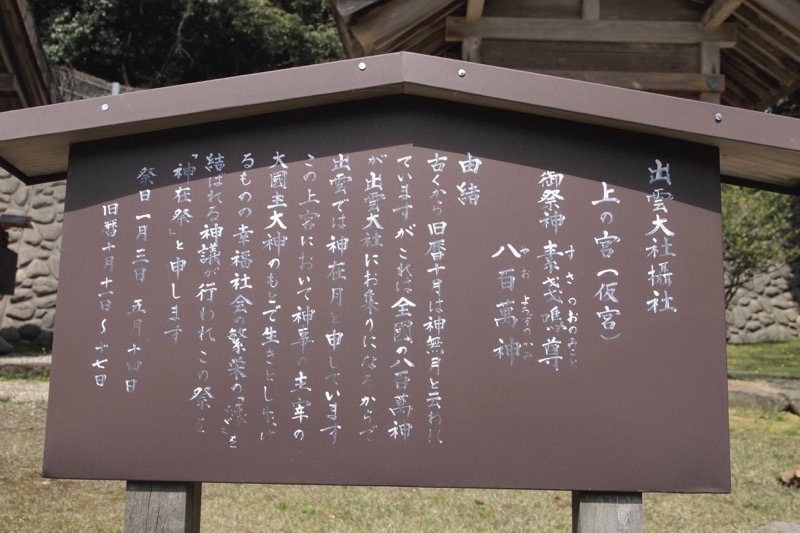 出雲大社攝社
上の宮(仮宮)
御祭神 素戔嗚尊
すさのおのみこと
八百萬神
やおよろずのかみ
由緒
古くから旧暦十月は神無月と云われ
ていますがこれは全国の八百萬神
が出雲大社にお集りになるからで
出雲では神在月と申しています
この上宮において神事の主宰の
大國主大神のもとで生きとし生ける
るものの幸福社会の繁栄の「縁」を
結ばれる神議が行われこの祭を
「神在祭」と申します
祭日 一月三日 五月十四日
旧暦十月十一日～十七日